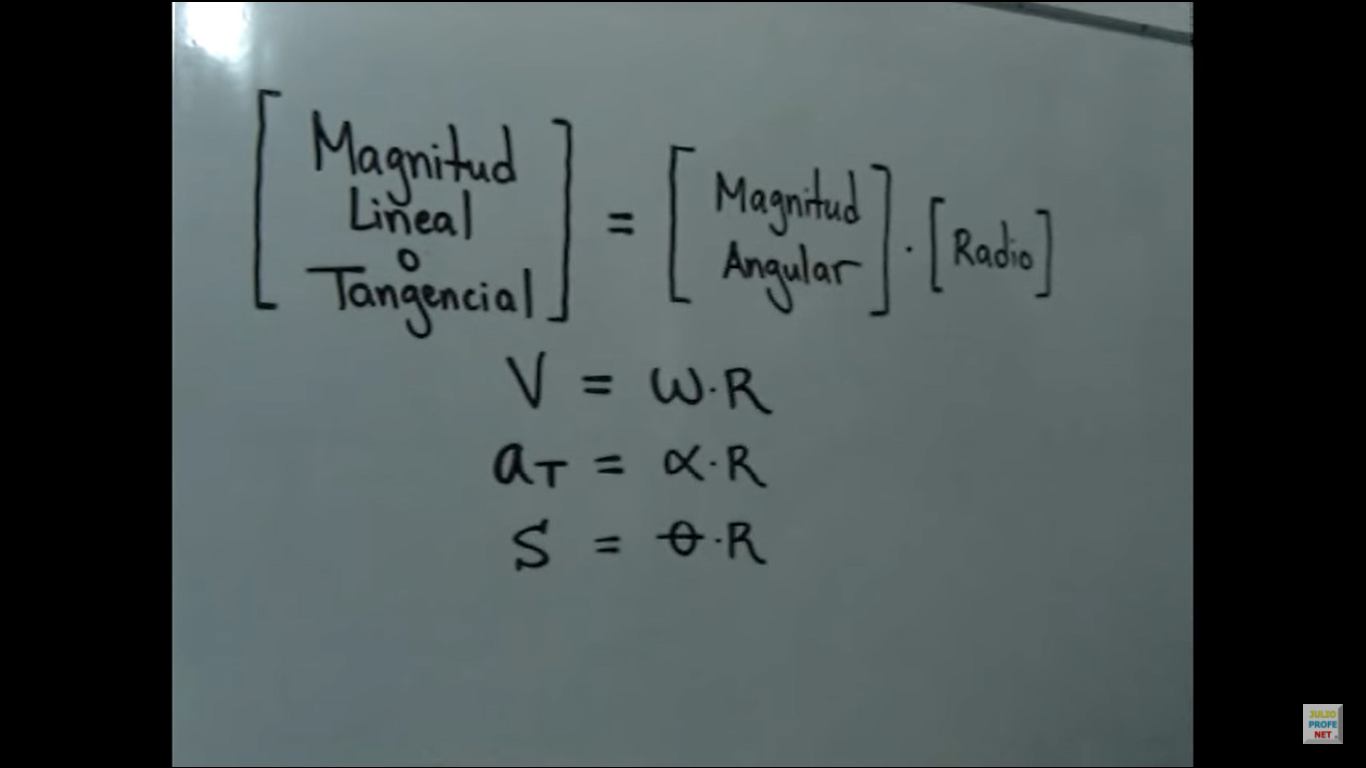 [Magnitud Lineal o Tangencial] = [Magnitud Angular] · [Radio]
V = ω·R
aT = α·R
S = θ·R
JULIO
PROFE
NET